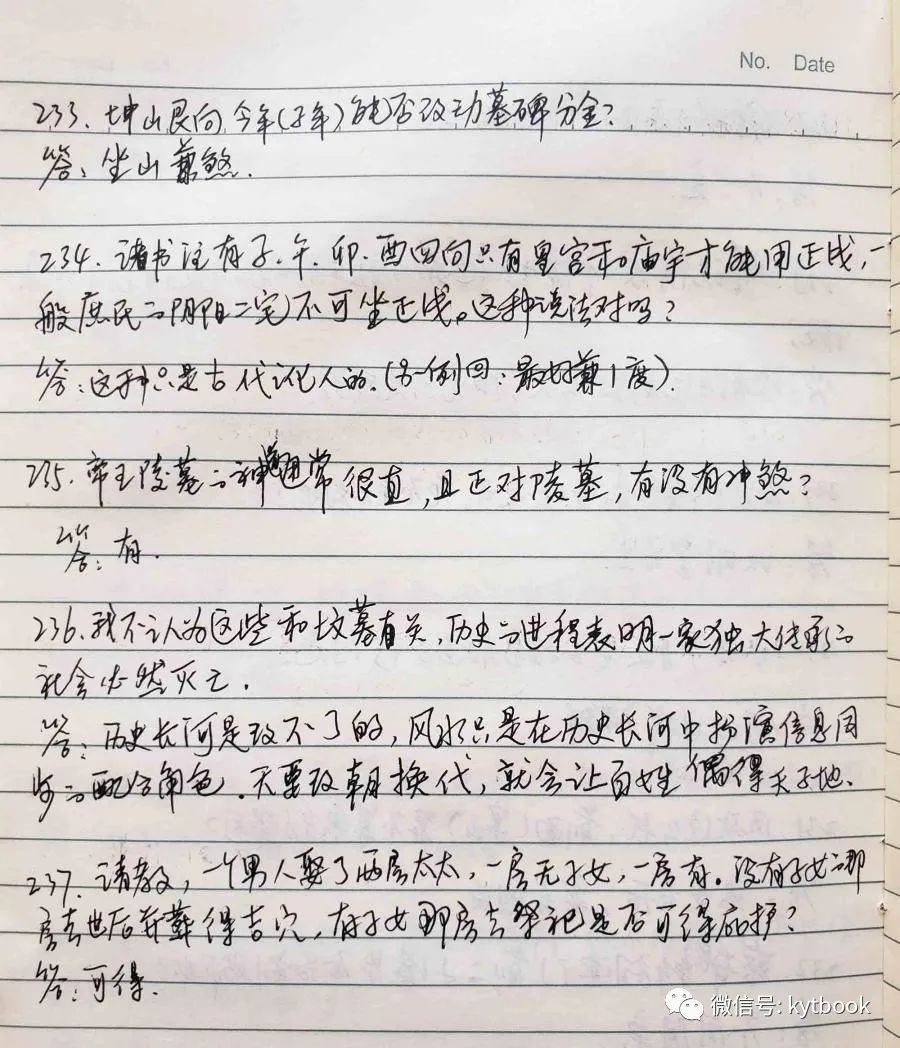 No. Date
233. 坤山艮向,今年(子年)能否改动墓碑分金?
答:坐山兼煞.
234. 诸书注有子.午.卯.酉四向只有皇宫和庙宇才能用正线,一
般庶民之阴阳二宅不可坐正线。这种说法对吗?
答:这种只是古代讹人的.(另一例回:最好兼1度).
235. 帝王陵墓之神道通常很直,且正对陵墓,有没有冲煞?
答:有.
236. 我不认为这些和坟墓有关.历史之进程表明一家独大传承之
社会必然灭亡.
答:历史长河是改不了的,风水只是在历史长河中扮演信息同
步之配合角色.天要改朝换代,就会让百姓偶得天子地.
237. 请教,一个男人娶了两房太太,一房无子女,一房有。没有子女之那
房去世后并葬得吉穴,有子女那房去祭祀是否可得庇护?
答:可得.
微信号: kytbook